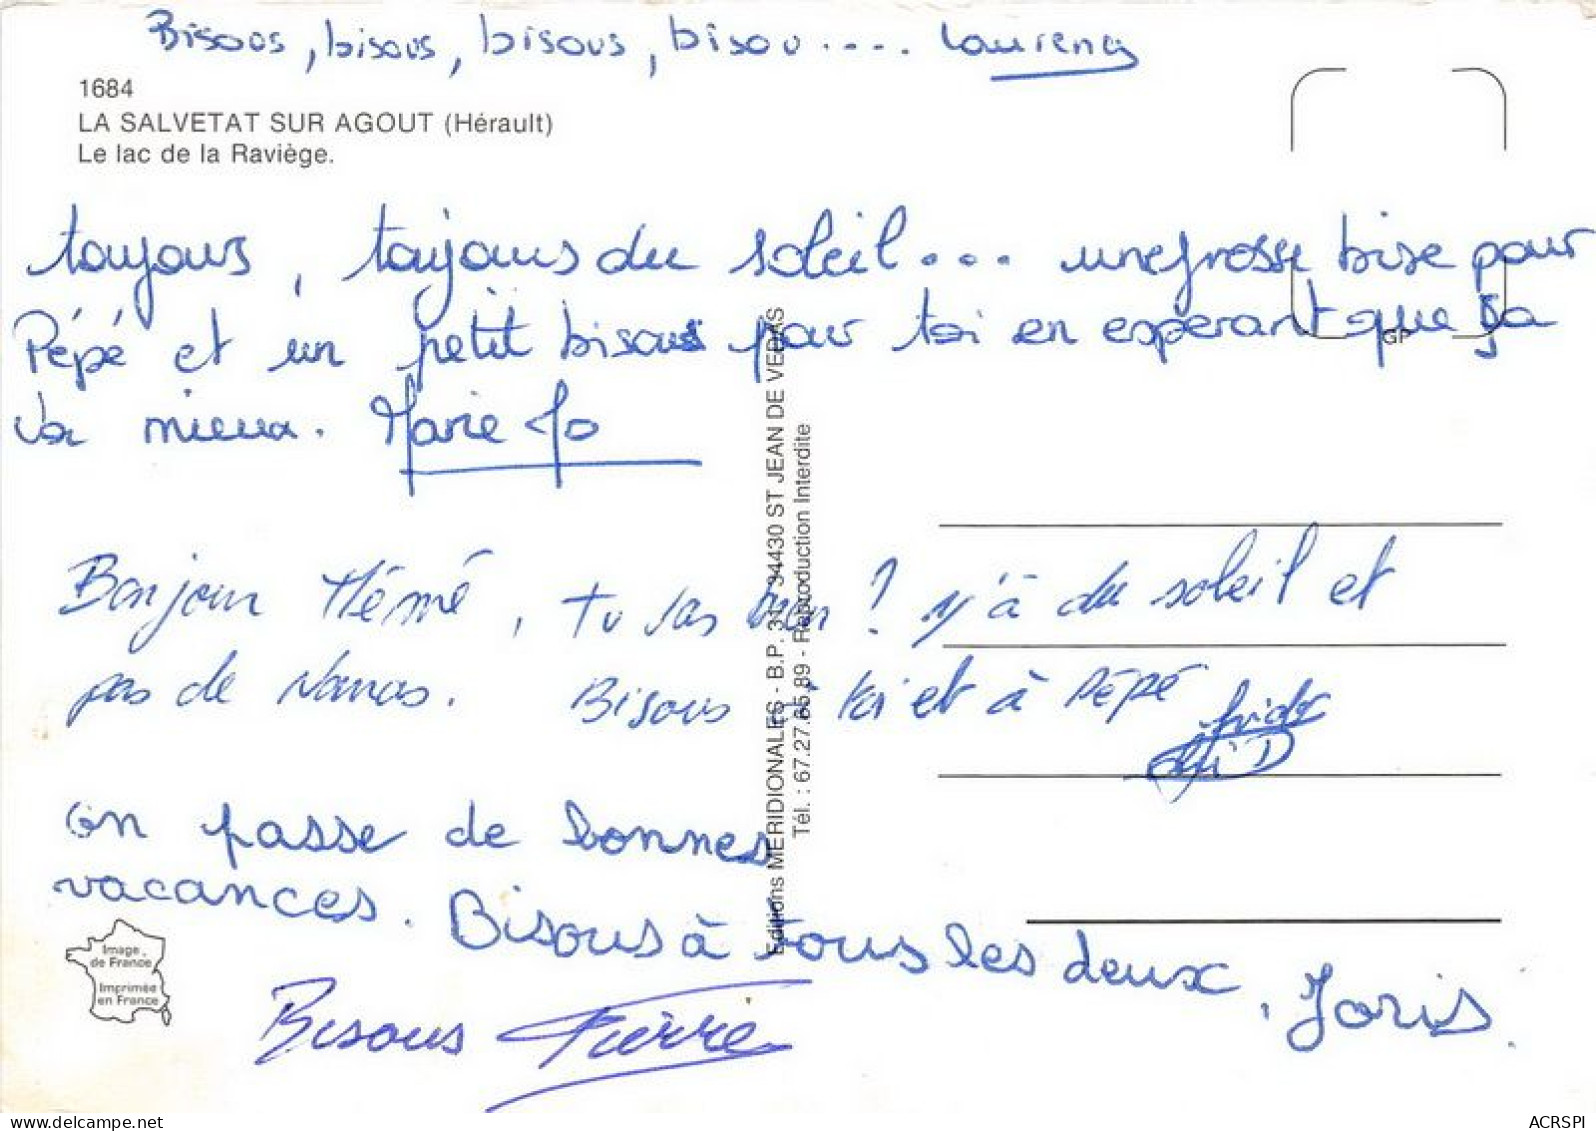 Bisous, bisous, bisous, bisou.... Laurence
1684
LA SALVETAT SUR AGOUT (Hérault)
Le lac de la Raviège.
toujours, toujours du soleil... une grosse bise pour
Pépé et un petit bisous pour toi en espérant que ça
va mieux. Marie Jo
GP
Bonjour Mémé, tu vas bien ? y'à du soleil et
pas de Nanas. Bisous à toi et à Pépé
on passe de bonnes
vacances. Bisous à tous les deux, Joris.
Bisous Pierre
Editions MERIDIONALES - B.P. 31 34430 ST JEAN DE VEDAS
Tél. : 67.27.65.89 - Reproduction Interdite
Image
de France
Imprimée
en France
www.delcampe.net
ACRSPI